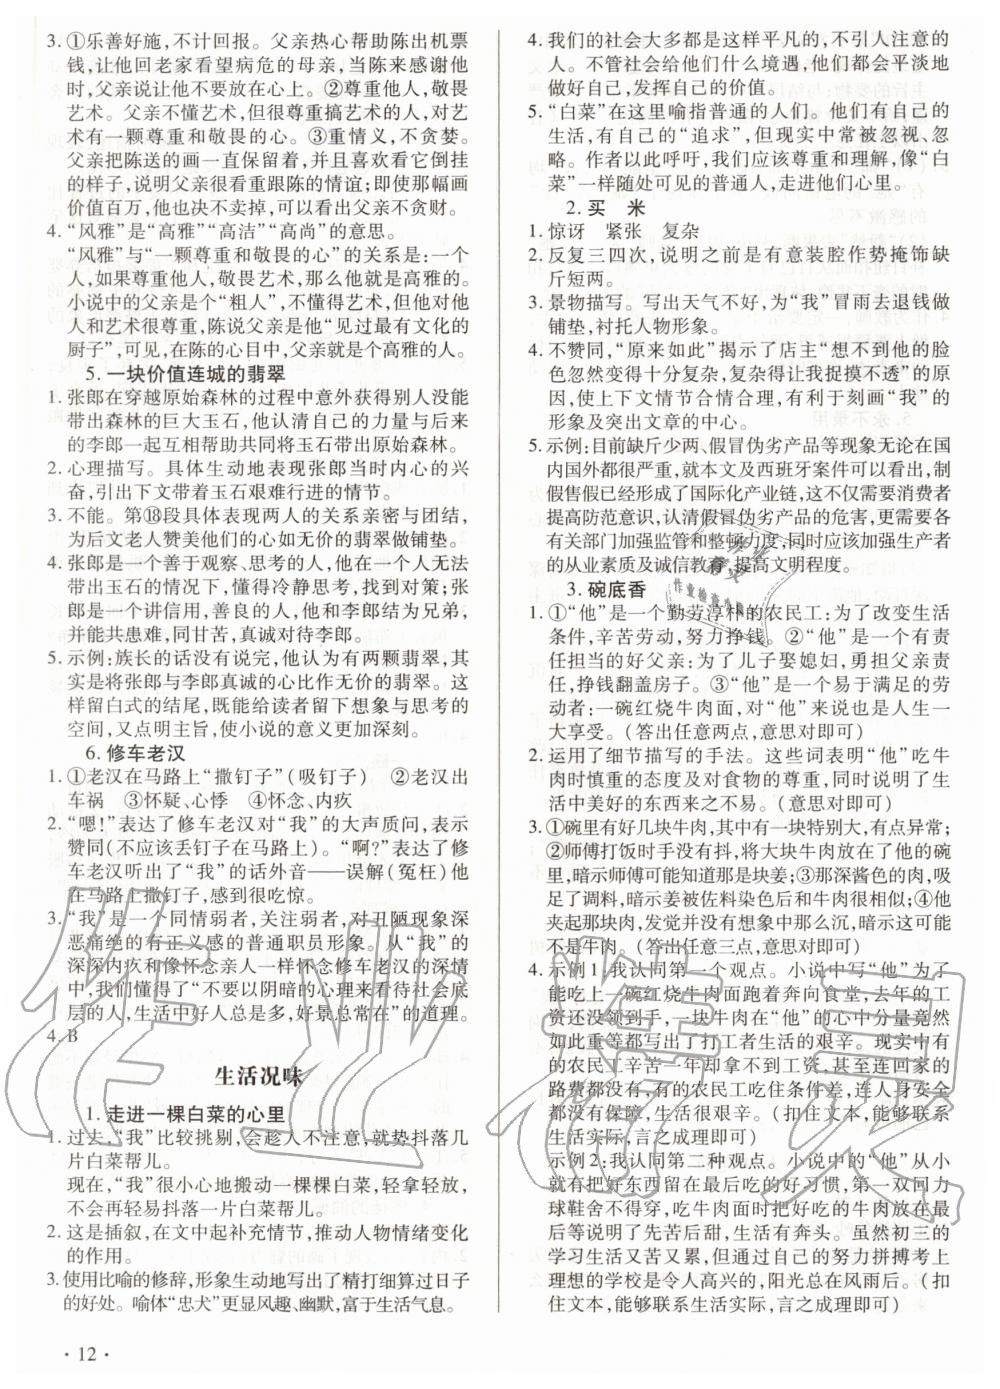 3. ①乐善好施,不计回报。父亲热心帮助陈出机票
钱,让他回老家看望病危的母亲,当陈感谢他
时,父亲说让他不要放在心上。②尊重他人,敬畏
艺术。父亲不懂艺术,但很尊重搞艺术的人,对
艺术有一颗尊重和敬畏的心。③重情义,不贪婪。
父亲把陈送的画一直保留着,并且喜欢看它倒挂
的样子,说明父亲很看重跟陈的情谊;即使那幅画
价值百万,他也决不卖掉,可以看出父亲不贪财。
4. “风雅”是“高雅”“高洁”“高尚”的意思。
“风雅”与“一颗尊重和敬畏的心”的关系是:一个
人,如果尊重他人,敬畏艺术,那么他就是高雅的。
小说中的父亲是个“粗人”,不懂得艺术,但他对他
人和艺术很尊重,陈说父亲是他“见过最有文化的
厨子”,可见,在陈的心目中,父亲就是个高雅的人。
5. 一块价值连城的翡翠
1. 张郎在穿越原始森林的过程中意外获得别人没能
带出森林的巨大玉石,他认清自己的力量与后来
的李郎一起互相帮助共同将玉石带出原始森林。
2. 心理描写。具体生动地表现张郎当时内心的兴
奋,引出下文带着玉石艰难行进的情节。
3. 不能。第⑱段具体表现两人的关系亲密与团结,
为后文老人赞美他们的心如无价的翡翠做铺垫。
4. 张郎是一个善于观察、思考的人,他在一个人无法
带出玉石的情况下,懂得冷静思考,找到对策;张
郎是一个讲信用,善良的人,他和李郎结为兄弟,
并能共患难,同甘苦,真诚对待李郎。
5. 示例:族长的话没有说完,他认为有两颗翡翠,其
实是将张郎与李郎真诚的心比作无价的翡翠。这
样留白式的结尾,既能给读者留下想象与思考的
空间,又点明主旨,使小说的意义更加深刻。
6. 修车老汉
1. ①老汉在马路上“撒钉子”(吸钉子) ②老汉出
车祸 ③怀疑、心悸 ④怀念、内疚
2. “嗯!”表达了修车老汉对“我”的大声质问,表示
赞同(不应该丢钉子在马路上)。“啊?”表达了修
车老汉听出了“我”的话外音——误解(冤枉)他
在马路上撒钉子,感到很吃惊。
3. “我”是一个同情弱者,关注弱者,对丑陋现象深
恶痛绝的有正义感的普通职员形象。从“我”的
深深内疚和像怀念亲人一样怀念修车老汉的深情
中,我们懂得了“不要以阴暗的心理来看待社会底
层的人,生活中好人总是多,好景总常在”的道理。
4. B
生活况味
1. 走进一棵白菜的心里
1. 过去,“我”比较挑剔,会趁人不注意,就势抖落几
片白菜帮儿。
现在,“我”很小心地搬动一棵棵白菜,轻拿轻放,
不会再轻易抖落一片白菜帮儿。
2. 这是插叙,在文中起补充情节,推动人物情绪变化
的作用。
3. 使用比喻的修辞,形象生动地写出了精打细算过日子
的好处。喻体“忠犬”更显风趣、幽默,富于生活气息。
4. 我们的社会大多都是这样平凡的,不引人注意的
人。不管社会给他们什么境遇,他们都会平淡地
做好自己,发挥自己的价值。
5. “白菜”在这里喻指普通的人们。他们有自己的
生活,有自己的“追求”,但现实中常被忽视、忽
略。作者以此呼吁,我们应该尊重和理解,像“白
菜”一样随处可见的普通人,走进他们心里。
2. 买 米
1. 惊讶 紧张 复杂
2. 反复三四次,说明之前是有意装腔作势掩饰缺
斤短两。
3. 景物描写。写出天气不好,为“我”冒雨去退钱做
铺垫,衬托人物形象。
4. 不赞同,“原来如此”揭示了店主“想不到他的脸
色忽然变得十分复杂,复杂得让我捉摸不透”的原
因,使上下文情节合情合理,有利于刻画“我”的
形象及突出文章的中心。
5. 示例:目前缺斤少两、假冒伪劣产品等现象无论在国
内国外都很严重,就本文及西班牙案件可以看出,制
假售假已经形成了国际化产业链,这不仅需要消费者
提高防范意识,认清假冒伪劣产品的危害,更需要各
有关部门加强监管和整顿力度;同时应该加强生产者
的从业素质及诚信教育,提高文明程度。
3. 碗底香
1. ①“他”是一个勤劳淳朴的农民工:为了改变生活
条件,辛苦劳动,努力挣钱。②“他”是一个有责
任担当的好父亲:为了儿子娶媳妇,勇担父亲责
任,挣钱翻盖房子。③“他”是一个易于满足的劳
动者:一碗红烧牛肉面,对“他”来说也是人生一
大享受。(答出任意两点,意思对即可)
2. 运用了细节描写的手法。这些词表明“他”吃牛
肉时慎重的态度及对食物的尊重,同时说明了生
活中美好的东西来之不易。(意思对即可)
3. ①碗里有好几块牛肉,其中有一块特别大,有点异常;
②师傅打饭时手没有抖,将大块牛肉放在了他的碗
里,暗示师傅可能知道那是块姜;③那深酱色的肉,吸
足了调料,暗示姜被佐料染色后和牛肉很相似;④他
夹起那块肉,发觉并没有想象中那么沉,暗示这可能
不是牛肉。(答出任意三点,意思对即可)
4. 示例1:我认同第一个观点。小说中写“他”为了
能吃上一碗红烧牛肉面跑着奔向食堂,去年的工
资还没领到手,一块牛肉在“他”的心中分量竟然
如此重等都写出了打工者生活的艰辛。现实中有
的农民工辛苦一年却拿不到工资,甚至连回家的
路费都没有,有的农民工吃住条件差,连人身安全
都没有保障,生活很艰辛。(扣住文本,能够联系
生活实际,言之成理即可)
示例2:我认同第二种观点。小说中的“他”从小
就有把好东西留在最后吃的好习惯,第一双回力
球鞋舍不得穿,吃牛肉面时把好吃的牛肉放在最
后等说明了先苦后甜,生活有奔头。虽然初三的
学习生活又苦又累,但通过自己的努力拼搏考上
理想的学校是令人高兴的,阳光总在风雨后。(扣
住文本,能够联系生活实际,言之成理即可)
· 12 ·